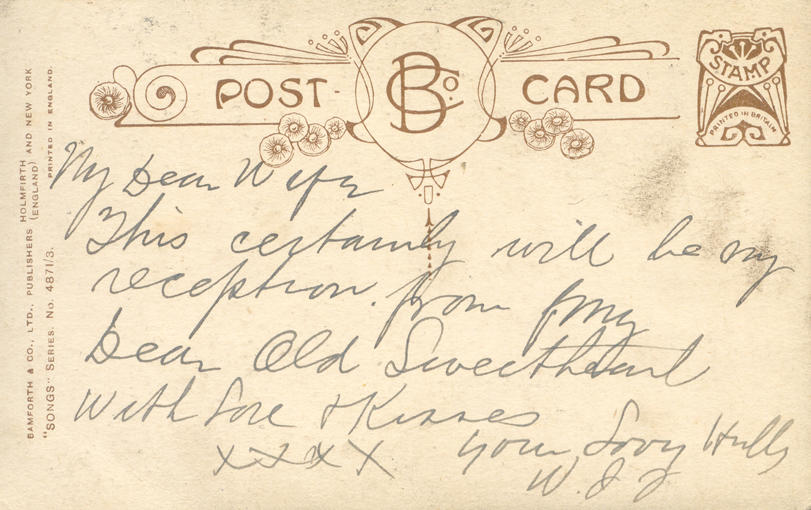 BAMFORTH & CO., LTD., PUBLISHERS HOLMFIRTH AND NEW YORK
(ENGLAND)
"SONGS" SERIES. No. 4871/3. PRINTED IN ENGLAND.
POST CARD
B Co.
STAMP
PRINTED IN BRITAIN
My Dear Wife
This certainly will be my
reception from my
Dear Old Sweetheart
With Love & Kisses
XXXX your Lovy Hubby
W.